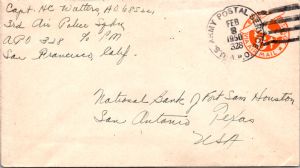 Capt. HC Watters, AO
3rd Air Police Sqdn
APO 328 % PM
San Francisco, Calif.
ARMY POSTAL SERVICE
FEB
8
1950
328
A.P.O.
U.S.
MAIL
National Bank of Fort Sam Houston
San Antonio Texas
USA